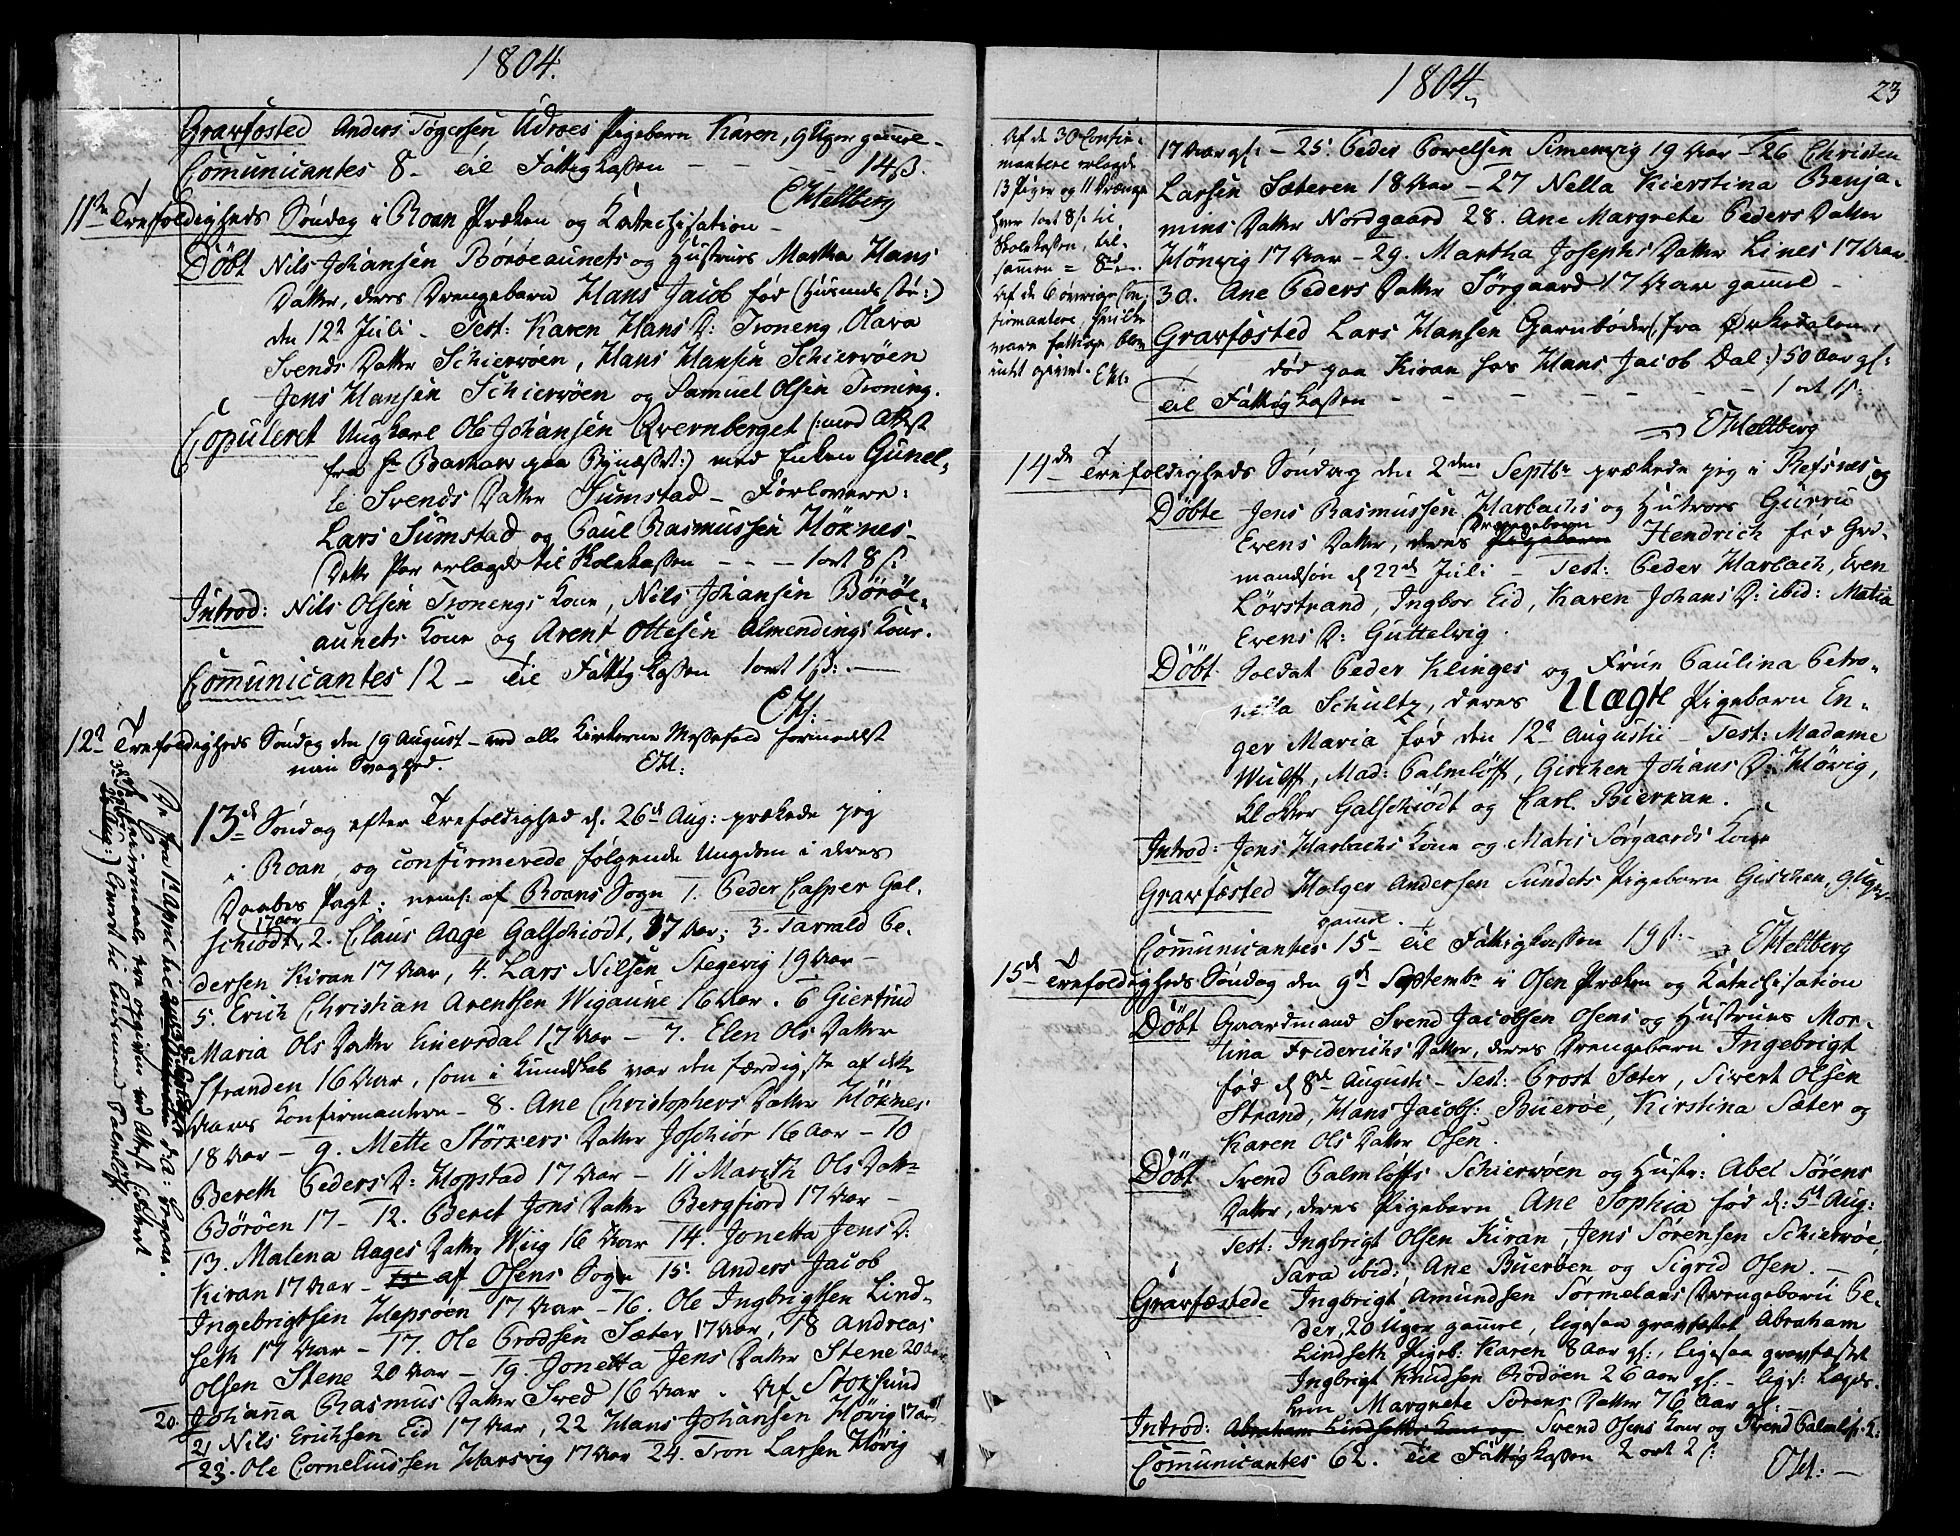 1804.
Gravfæsted Anders Tøgersen Udroes Pigebarn Karen, 9 Uger gamle
Communicantes 8 - Til Fattig Kassen - 14 ß.
EHeltberg
11te Trefoldigheds Søndag i Roan Præken og Katechisation -
Døbt Nils Johansen Børøeaunets og Hustrues Martha Hans
Datter, deres Drengebarn Hans Jacob fød
den 12te Juli - Test: Karen Hans D: Troneng, Olava
Svends Datter Schierwøen, Hans Hansen Schierwøen
Jens Hansen Schierwøen og Samuel Olsen Troning.
Copuleret Ungkarl Ole Johansen Qvernberget (: med Attest
fra Hr Barhow paa Bynæsset :) med Enken Gunel-
le Svends Datter Sumstad - Forlovere:
Lars Sumstad og Paul Rasmussen Høknes -
Dette Par erlagde til Skolekassen - - - 1 ort 8 ß
Introd: Nils Olsen Tronengs Kone, Nils Johansen Børøe-
aunets Kone og Arent Ottesen Almendings Kone.
Communicantes 12 - Til Fattig Kassen 1 ort 1 ß: -
EH:
12te Trefoldigheds Søndag den 19 August - ved alle Kirkerne Messefald formedelst
min Svaghed. EH:
13de Søndag efter Trefoldighed d. 26de Aug: prækede jeg
i Roan, og confirmerede følgende Ungdom i deres
Daabes Pagt; neml: af Roans Sogn 1. Peder Casper Gal-
schiødt, 17 Aar 2. Claus Aage Galschiødt, 17 Aar; 3. Tarrald Pe-
dersen Kiran 17 Aar, 4. Lars Nilsen Stegevig 19 Aar -
5. Erich Christian Arentsen Wigaune 16 Aar. 6 Giertrud
Maria Ols Datter Einersdal 17 Aar - 7. Elen Ols Datter
Stranden 16 Aar, som i Kundskab var den færdigste af dette
Aars Konfirmantere - 8. Ane Christophers Datter Høknes
18 Aar - 9. Mette Størkers Datter Joschiør 16 Aar - 10
Bereth Peders D: Hopstad 17 Aar - 11 Mareth Ols Datter
Børøen 17 - 12. Beret Jons Datter Bergfiord 17 Aar -
13. Malena Aages Datter Wiig 16 Aar 14. Jonetta Jens D:
Kiran 17 Aar - af Osens Sogn 15. Anders Jacob
Ingebrigtsen Hepsøen 17 Aar - 16. Ole Ingbrigtsen Lind-
seth 17 Aar - 17. Ole Prodsen Sæter 17 Aar, 18 Andreas
Olsen Stene 20 Aar - 19. Jonetta Jens Datter Stene 20 Aar
20. Johanna Rasmus Datter Sved 16 Aar. Af Stoksund
21 Nils Erichsen Eid 17 Aar, 22 Hans Johansen Høvig 17 Aar
23. Ole Corneliussen Harsvig 17 Aar 24. Tron Larsen Høvig
1804.
23
Af de 30 Confir-
mantere erlagde
13 Piger og 11 Drenge
hver 1 ort 8 ß til
Skolekassen, til-
sammen = 8rd.
Af de 6 øvrige Con-
firmantere, hvilke
vare fattige blev
intet givet. EH:
17 Aar gl: - 25. Peder Povelsen Simenvig 19 Aar - 26 Christen
Larsen Sæteren 18 Aar - 27 Nella Kierstina Benja-
mins Datter Nordgaard 28. Ane Margrete Peders Datter
Hønvig 17 Aar - 29. Martha Josephs Datter Lines 17 Aar
30. Ane Peders Datter Sørgaard 17 Aar gamle -
Gravfæsted Lars Hansen Garnbøder (: fra Ørkedalen,
død paa Kiran hos Hans Jacob Dal :) 50 Aar gl:
Til Fattig Kassen - - - - - - 1 ort 1 ß:
EHeltberg
14de Trefoldigheds Søndag den 2den Septbr prækede jeg i Refsnes og
Døbte Jens Rasmussen Harbachs og Hustrues Gurru
Evens Datter, deres Drengebarn Hendrich fød Gaard-
mandsøn d 22de Juli - Test: Peder Harbach, Even
Lørstrand, Ingbor Eid, Karen Johans D: ibid: Matia
Evens D: Guttelvig.
Døbt Soldat Peder Klinges og Frue Paulina Petro-
nella Schultz, deres Uægte Pigebarn En-
ger Maria fød den 12te Augusti - Test: Madame
Wulff, Mad: Palmløff, Gischen Johans D: Høvig,
Klokker Galschiødt og Carl Bierkan.
Introd: Jens Harbachs Kone og Matis Sørgaards Kone
Gravfæsted Holger Andersen Sundets Pigebarn Gischen, 9 Uger
gamle.
Communicantes 15 - Til Fattigkassen 19 ß: - EHeltberg
15de Trefoldigheds Søndag den 9de Septembr i Osen Præken og Katechisation
Døbt Gaardmand Svend Jacobsen Osens og Hustrues Mor-
tina Friderichs Datter, deres Drengebarn Ingebrigt
fød d 8de Augusti - Test: Prost Sæter, Sivert Olsen
Strand, Hans Jacobs: Buerøe, Kirstina Sæter og
Karen Ols Datter Osen.
Døbt Svend Palmløffs Schierwøen og Hustr: Abel Sørens
Datter, deres Pigebarn Ane Sophia fød d: 5te Aug:
Test: Ingbrigt Olsen Kiran, Jens Sørensen Schierwøe,
Sara ibid: Ane Buerøen og Sigrid Osen. -
Gravfæstede Ingbrigt Amundsen Sørmelans Drengebarn Pe-
der, 20 Uger gamle, ligesaa gravfæstet Abraham
Lindseth Pigeb: Karen 8 Aar gl:, ligesaa gravfæstet
Ingbrigt Knudsen Rodøen 26 Aar gl - lig: Lægds-
Lem Margrete Sørens Datter 76 Aar gl: -
Introd: Abraham Lindseths Kone og Svend Osens Kone og Svend Palmløfs K:
Communicantes 62. Til Fattig Kassen 2 ort 2 ß:
EH: -